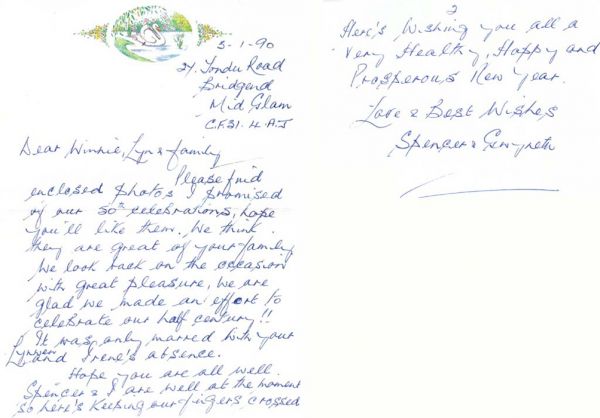 5-1-90
24 Tondu Road
Bridgend
Mid Glam
CF31. 4 A.J
Dear Winnie, Lyn & family
Please find
enclosed photos I promised
of our 50th celebrations, hope
you'll like them. We think
they are great of your family
We look back on the occasion
with great pleasure, we are
glad we made an effort to
celebrate our half century!!
It was only marred with your
and Irene's absence.
Hope you are all well.
Spencer & I are well at the moment
so here's keeping our fingers crossed
2
Here's Wishing you all a
Very Healthy, Happy and
Prosperous New Year.
Love & Best Wishes
Spencer & Gwyneth